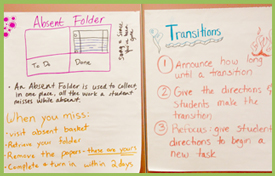 Absent Folder
To Do
Done
• An Absent Folder is used to collect,
in one place, all the work a student
misses while absent.
When you miss:
-visit absent basket
-Retrieve your folder
-Remove the papers - these are yours!
-Complete + turn in within 2 days
Transitions
1 Announce how long
until a transition
2 Give the directions
students make the
transition
3 Refocus: give student
directions to begin a
new task